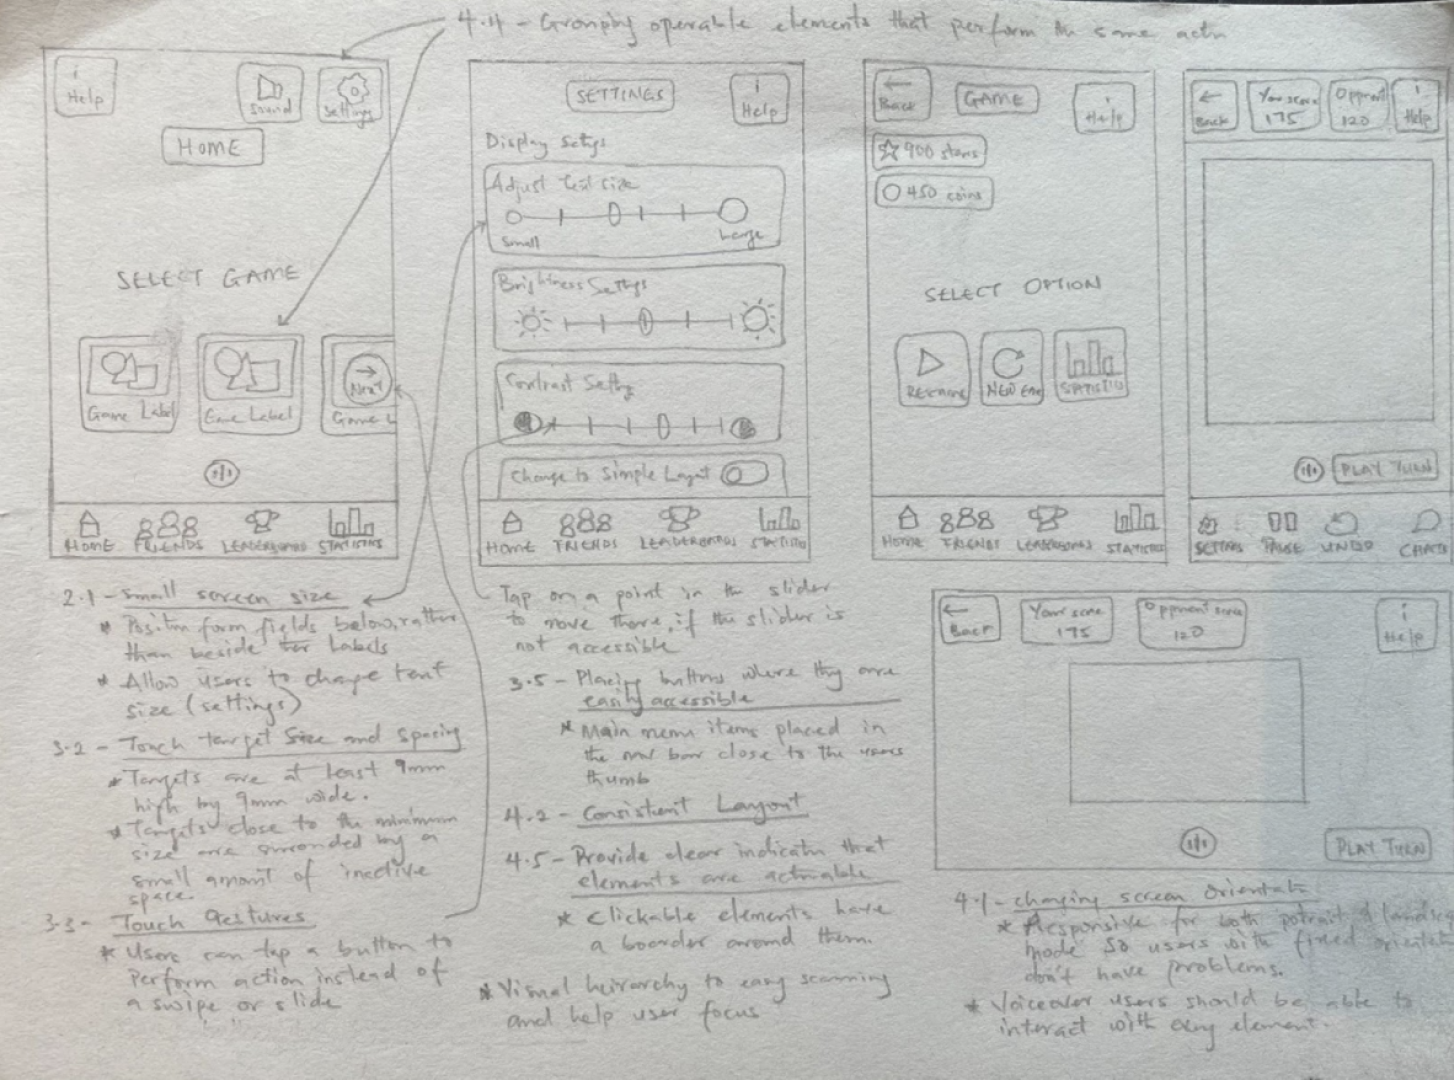 4.4 - Grouping operable elements that perform the same actn
i
Help
Sound
Settings
HOME
SELECT GAME
Game Label
Game Label
Next
Game L
HOME
FRIENDS
LEADERBOARDS
STATISTICS
SETTINGS
i
Help
Display Settgs
Adjust text size
Small
Large
Brightness Settgs
Contrast Settg
Change to Simple Layout
HOME
FRIENDS
LEADERBOARDS
STATISTICS
Back
GAME
i
Help
900 stars
450 coins
SELECT OPTION
RESUME
NEW GAME
STATISTIC
HOME
FRIENDS
LEADERBOARDS
STATISTICS
Back
Your score
175
Oppnent
120
i
Help
PLAY TURN
SETTINGS
PAUSE
UNDO
CHATS
2.1 - Small screen size
* Position form fields below, rather
than beside their Labels
* Allow users to change text
size (settings)
3.2 - Touch target size and spacing
* Targets are at least 9mm
high by 9mm wide.
* Targets close to the minimum
size are surronded by a
small amount of inactive
space.
3.3 - Touch Gestures
* Users can tap a button to
perform action instead of
a swipe or slide
Tap on a point in the slider
to move there, if the slider is
not accessible
3.5 - Placing buttons where they are
easily accessible
* Main menu items placed in
the nav bar close to the users
thumb
4.2 - Consistent Layout
4.5 - Provide clear indicatn that
elements are actionable
* Clickable elements have
a boarder around them.
* Visual heirarchy to easy scanning
and help user focus
Back
Your score
175
Oppnent score
120
i
Help
PLAY TURN
4.1 - changing screen orientatn
* Responsive for both potrait & landsc
mode so users with fixed orientat
don't have problems.
* Voiceover users should be able to
interact with any element.